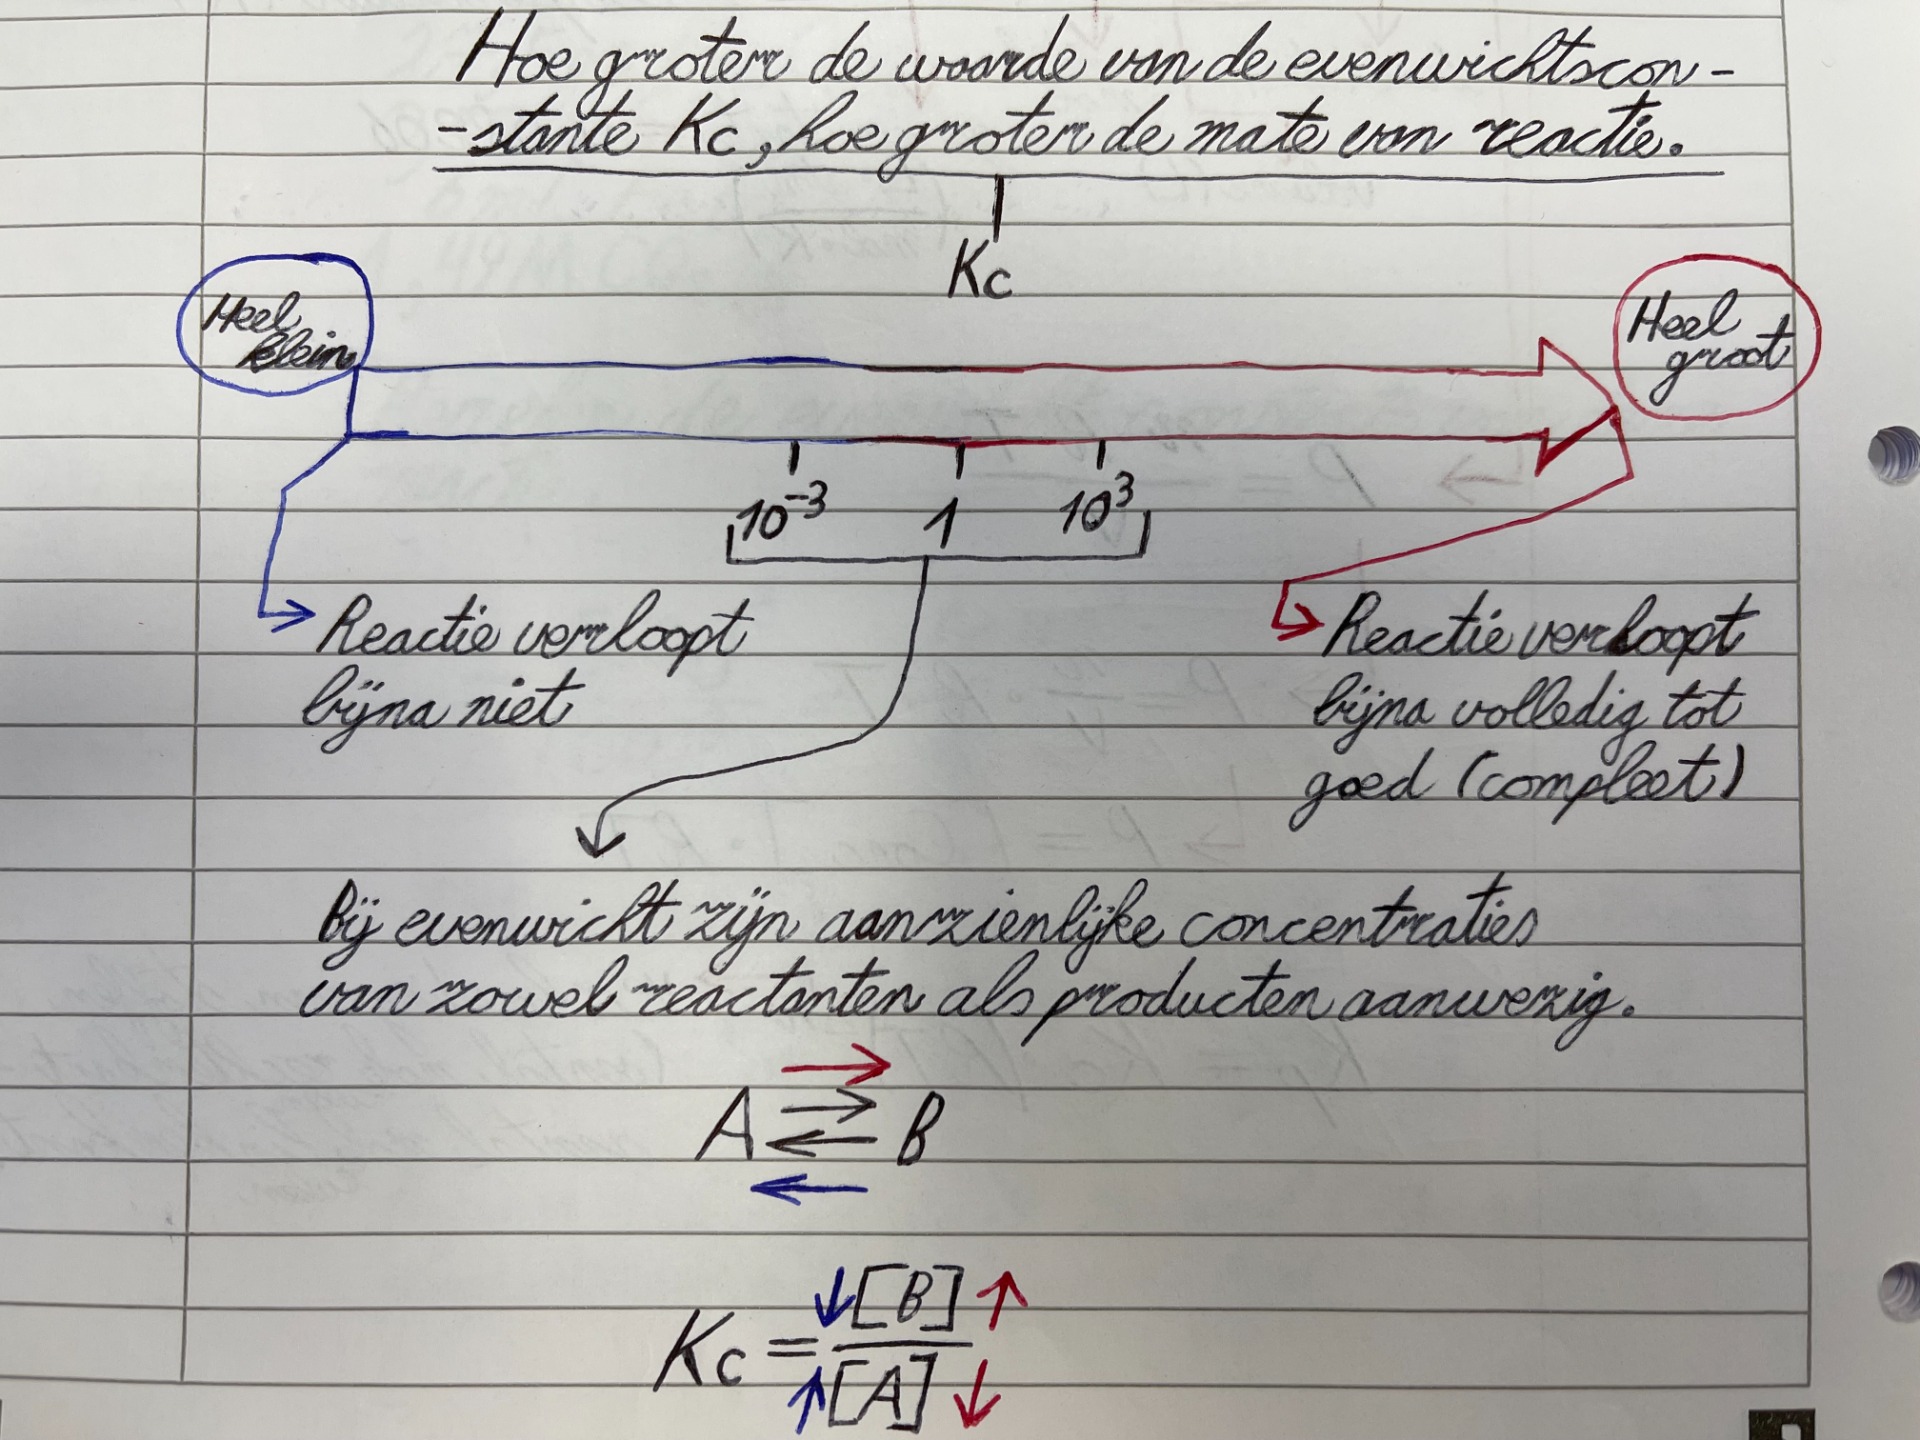 Hoe groter de waarde van de evenwichtscon-
-stante Kc, hoe groter de mate van reactie.
Kc
Heel
klein
Heel
groot
10⁻³ 1 10³
Reactie verloopt
bijna niet
Reactie verloopt
bijna volledig tot
goed (compleet)
Bij evenwicht zijn aanzienlijke concentraties
van zowel reactanten als producten aanwezig.
→
A ⇌ B
←
Kc = ↓[B]↑ / ↑[A]↓